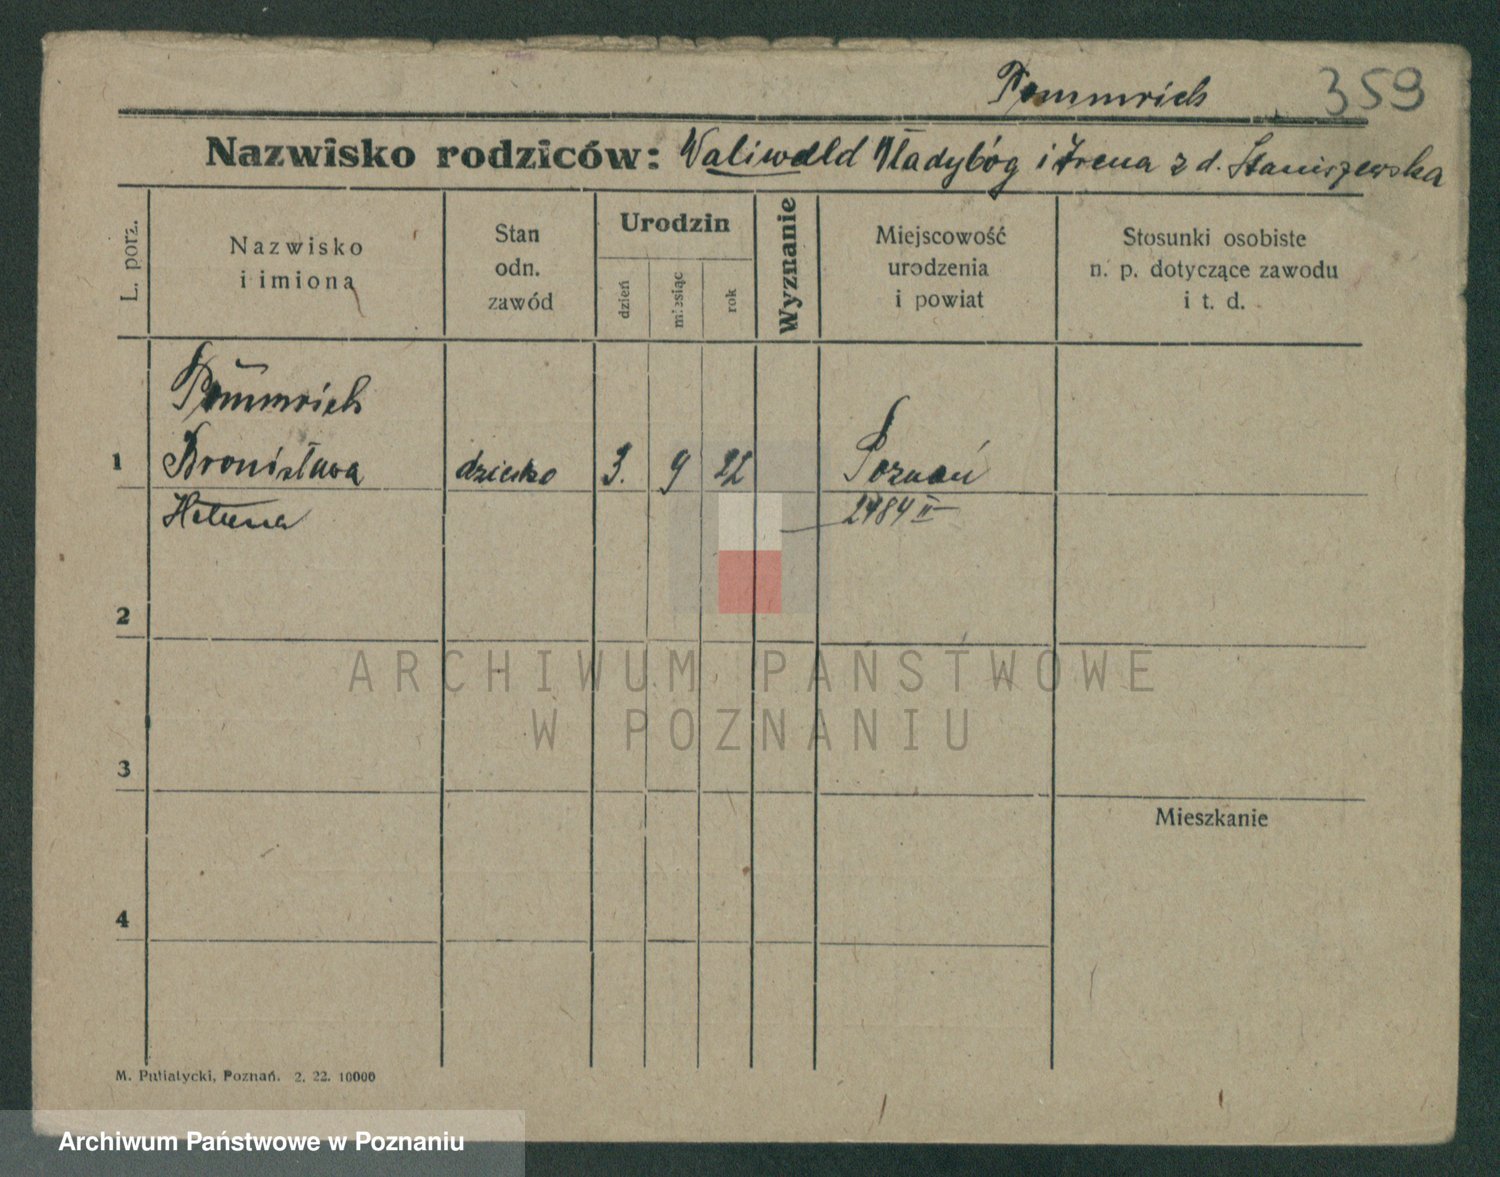 Pommrich 359
Nazwisko rodziców: Waliwald Władybóg i Irena z d. Staniszewska
L. porz.
Nazwisko
i imiona
Stan
odn.
zawód
Urodzin
dzień
miesiąc
rok
Wyznanie
Miejscowość
urodzenia
i powiat
Stosunki osobiste
n. p. dotyczące zawodu
i t. d.
Pommrich
1 Bronisława dziecko 3. 9 22 Poznań
Helena 2484 II
2
3
Mieszkanie
4
ARCHIWUM PAŃSTWOWE
W POZNANIU
M. Putiatycki, Poznań. 2. 22. 10000
Archiwum Państwowe w Poznaniu